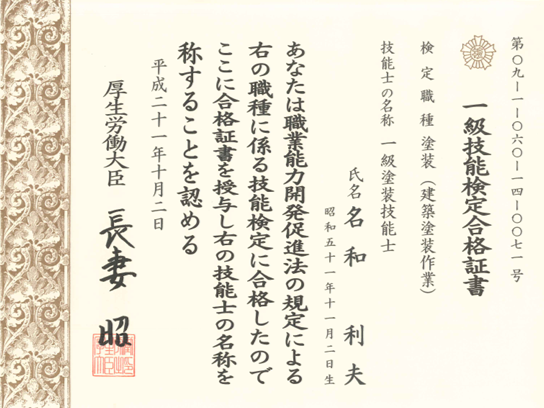 第〇九―一―〇六〇―一四―〇〇七一号
一級技能検定合格証書
検定職種 塗装（建築塗装作業）
技能士の名称 一級塗装技能士
氏名 名和 利夫
昭和五十一年十一月二日生
あなたは職業能力開発促進法の規定による
右の職種に係る技能検定に合格したので
ここに合格証書を授与し右の技能士の名称を
称することを認める
平成二十一年十月二日
厚生労働大臣 長妻 昭